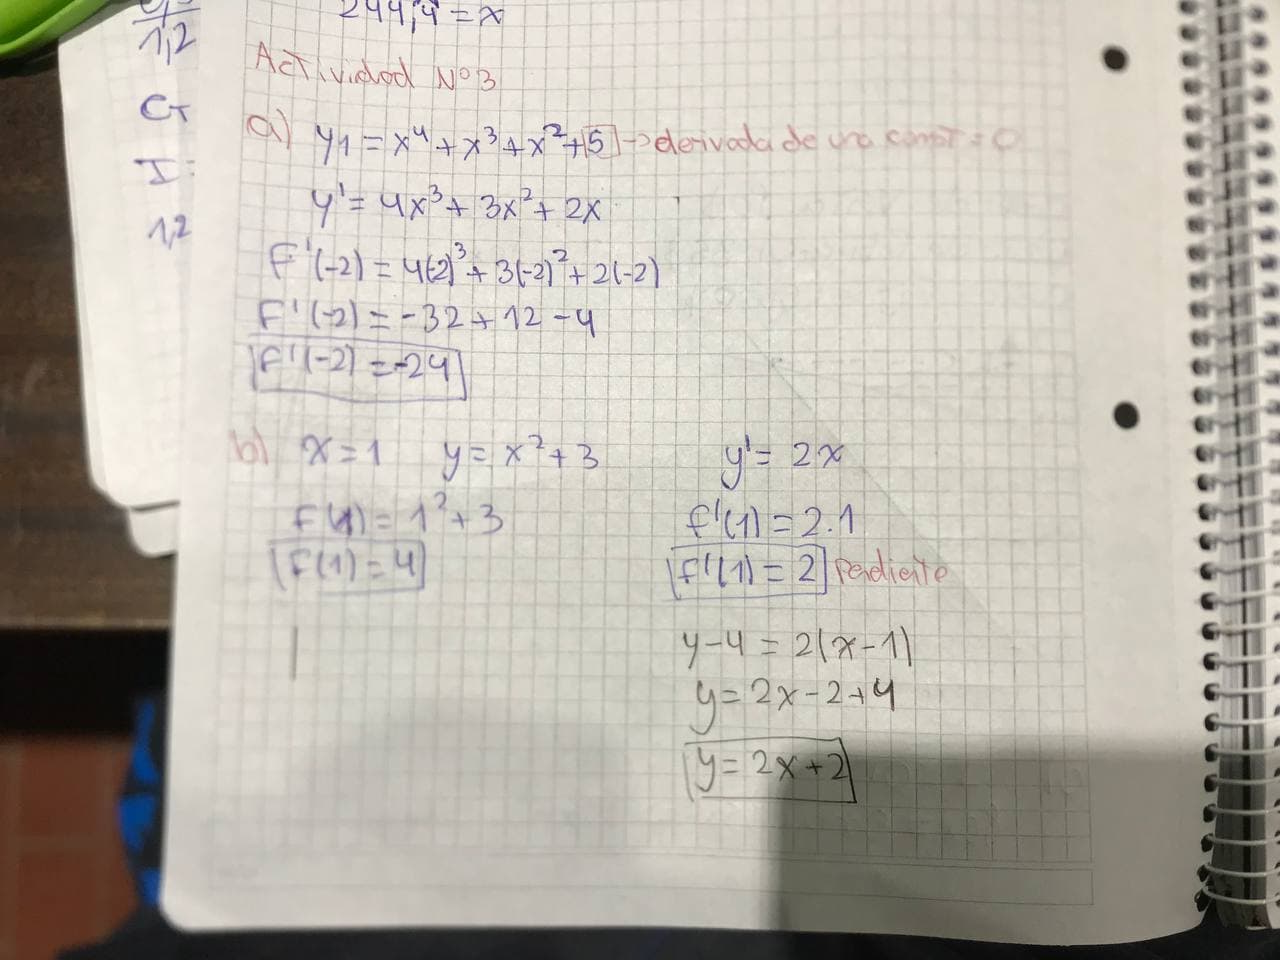 1,2
244,4 = x
CT
I =
1,2
Actividad N°3
a) y1 = x⁴ + x³ + x² + 5 → derivada de una const = 0
y' = 4x³ + 3x² + 2x
F'(-2) = 4(-2)³ + 3(-2)² + 2(-2)
F'(-2) = -32 + 12 - 4
F'(-2) = -24
b) x = 1 y = x² + 3 y' = 2x
F(1) = 1² + 3 f'(1) = 2.1
F(1) = 4 f'(1) = 2 Pendiente
y - 4 = 2(x - 1)
y = 2x - 2 + 4
y = 2x + 2